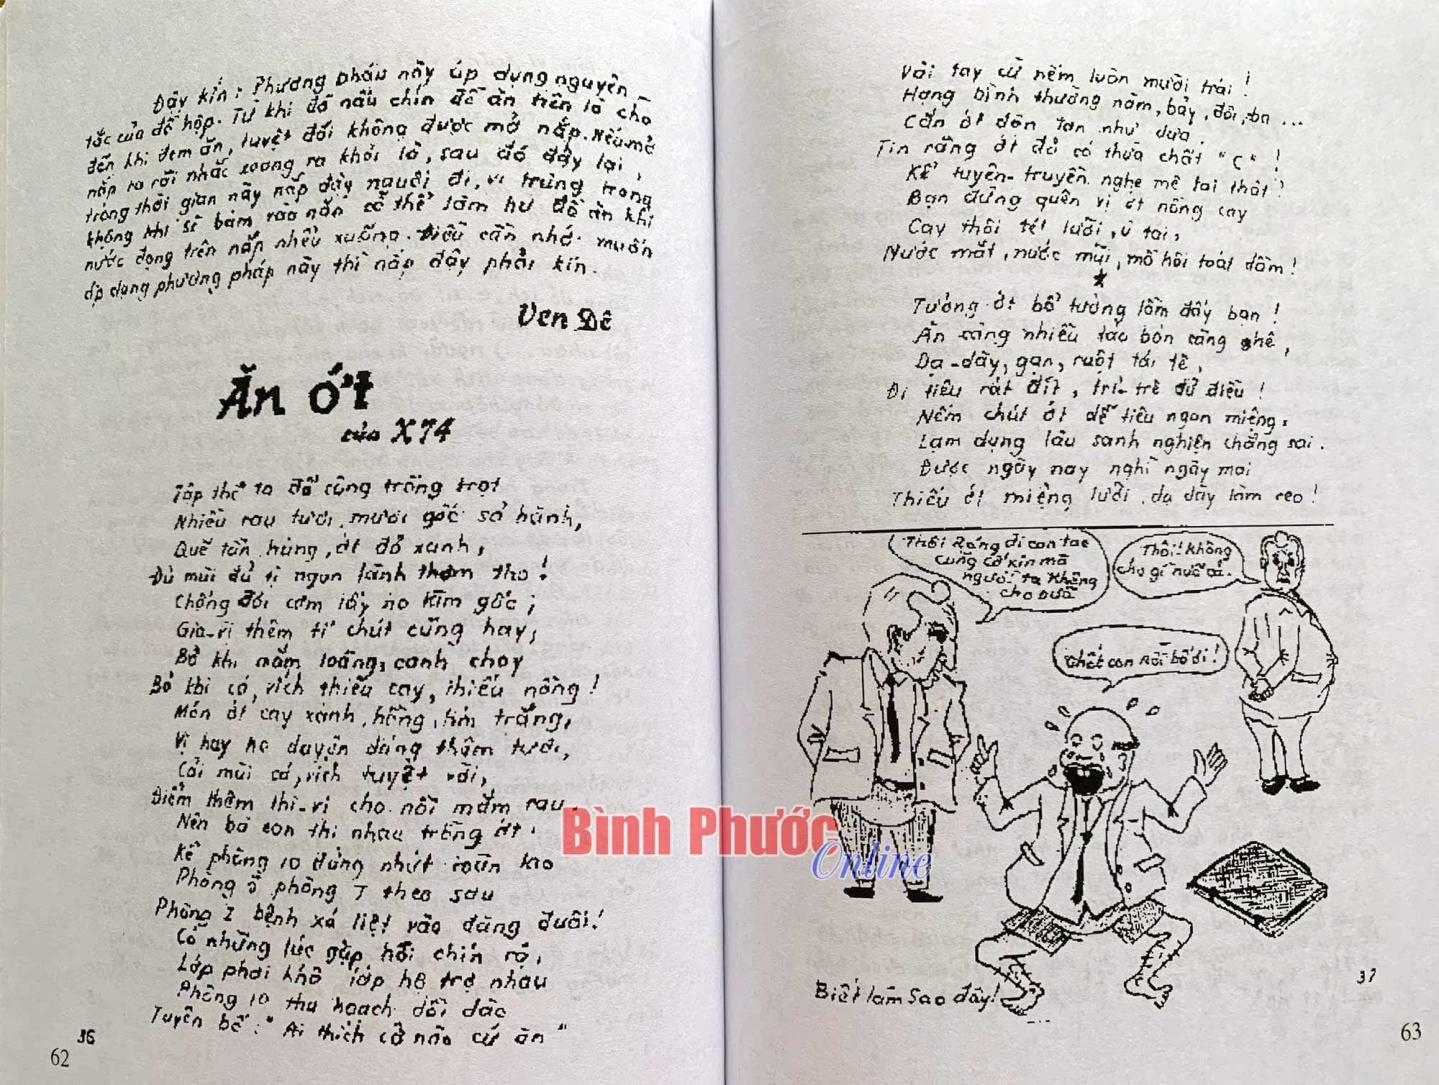 Đậy kín: Phương pháp này áp dụng nguyên
tắc của đồ hộp. Từ khi đồ nấu chín để ăn trên lò cho
đến khi đem ăn, tuyệt đối không được mở nắp. Nếu mở
nắp ra rồi nhắc xoong ra khỏi lò, sau đó đậy lại,
trong thời gian này nắp đậy nguội đi, vi trùng trong
không khí sẽ bám vào nắp có thể làm hư đồ ăn khi
nước đọng trên nắp nhểu xuống. Điều cần nhớ muốn
áp dụng phương pháp này thì nắp đậy phải kín.
Ven Đê
Ăn ớt
của X74
Tập thể ta đổ công trồng trọt
Nhiều rau tươi, mươi gốc sả hành,
Quế tần hùng, ớt đỏ xanh,
Đủ mùi đủ vị ngon lành thơm tho!
Chống đói cơm lấy no kìm gốc;
Gia-vị thêm tí chút cũng hay,
Bỏ khi mắm loãng, canh chay
Bỏ khi cá, rích thiếu cay, thiếu nồng!
Món ớt cay xanh, hồng, tím trắng,
Vị hay ho duyên dáng thậm tươi,
Cải mùi cá, rích tuyệt vời,
Điểm thêm thi-vị cho nồi mắm rau.
Nên bà con thi nhau trồng ớt.
Kể phòng 10 đứng nhứt
Phòng 5 phòng 7 theo sau
Phòng 2 bệnh xá liệt vào đàng đuôi!
Có những lúc gặp hồi chín rộ,
Lớp phơi khô lớp hộ trợ nhau
Phòng 10 thu hoạch dồi dào
Tuyên bố: "Ai thích cở nào cứ ăn"
36
62
Vài tay cừ nếm luôn mười trái!
Hạng bình thường năm, bảy, đôi, ba ...
Cắn ớt dòn tan như dưa,
Tin rằng ớt đỏ có thừa chất "C"!
Kể tuyên-truyền nghe mê tai thật!
Bạn đừng quên vị ớt nồng cay
Cay thôi tét lưỡi, ù tai,
Nước mắt, nước mũi, mồ hôi toát dầm!
★
Tưởng ớt bổ tưởng lầm đấy bạn!
Ăn càng nhiều táo bón càng ghê,
Dạ-dày, gan, ruột tái tê,
Đi tiêu rát đít, trĩ-trê đủ điều!
Nếm chút ớt dễ tiêu ngon miệng,
Lạm dụng lâu sanh nghiện chẳng sai.
Được ngày nay nghĩ ngày mai
Thiếu ớt miệng lưỡi dạ dày làm reo!
Thôi Ráng đi con tao
cũng cố xin mà
người ta không
cho nữa
Thôi! không
cho gì nữa cả.
Chết con Rồi bố ơi!
Biết làm Sao đây!
37
63
Bình Phước
Online